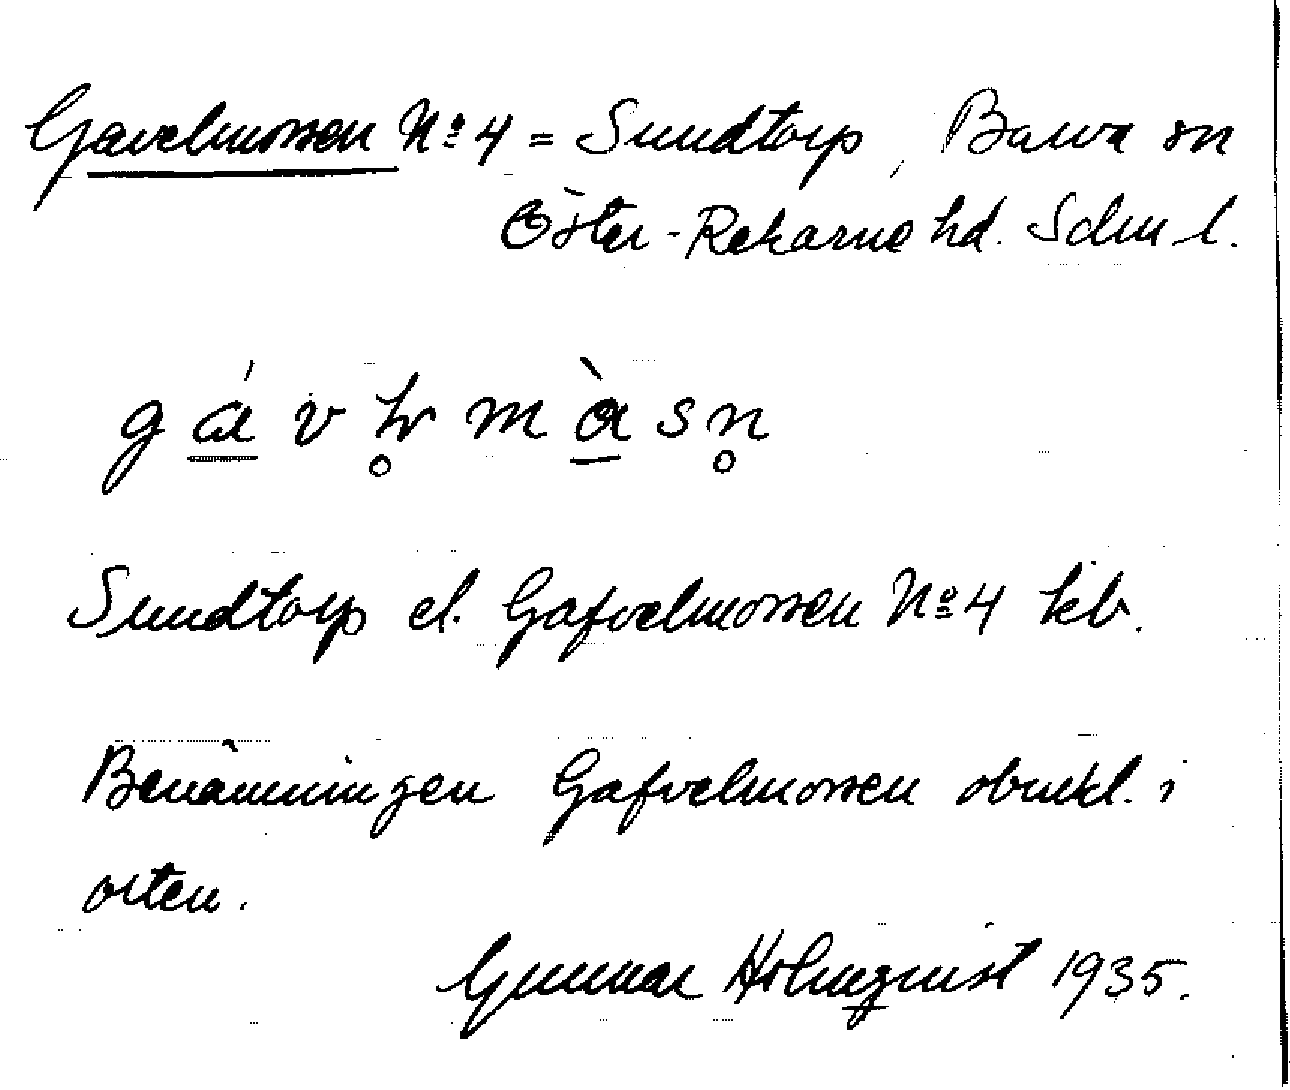 Gavelmossen Nº 4 = Sundtorp, Barva sn
Öster-Rekarne hd. Sdm l.
Sundtorp el. Gafvelmossen Nº 4 kb.
Benämningen Gafvelmossen obrukl. i
orten.
Gunnar Holmquist 1935.